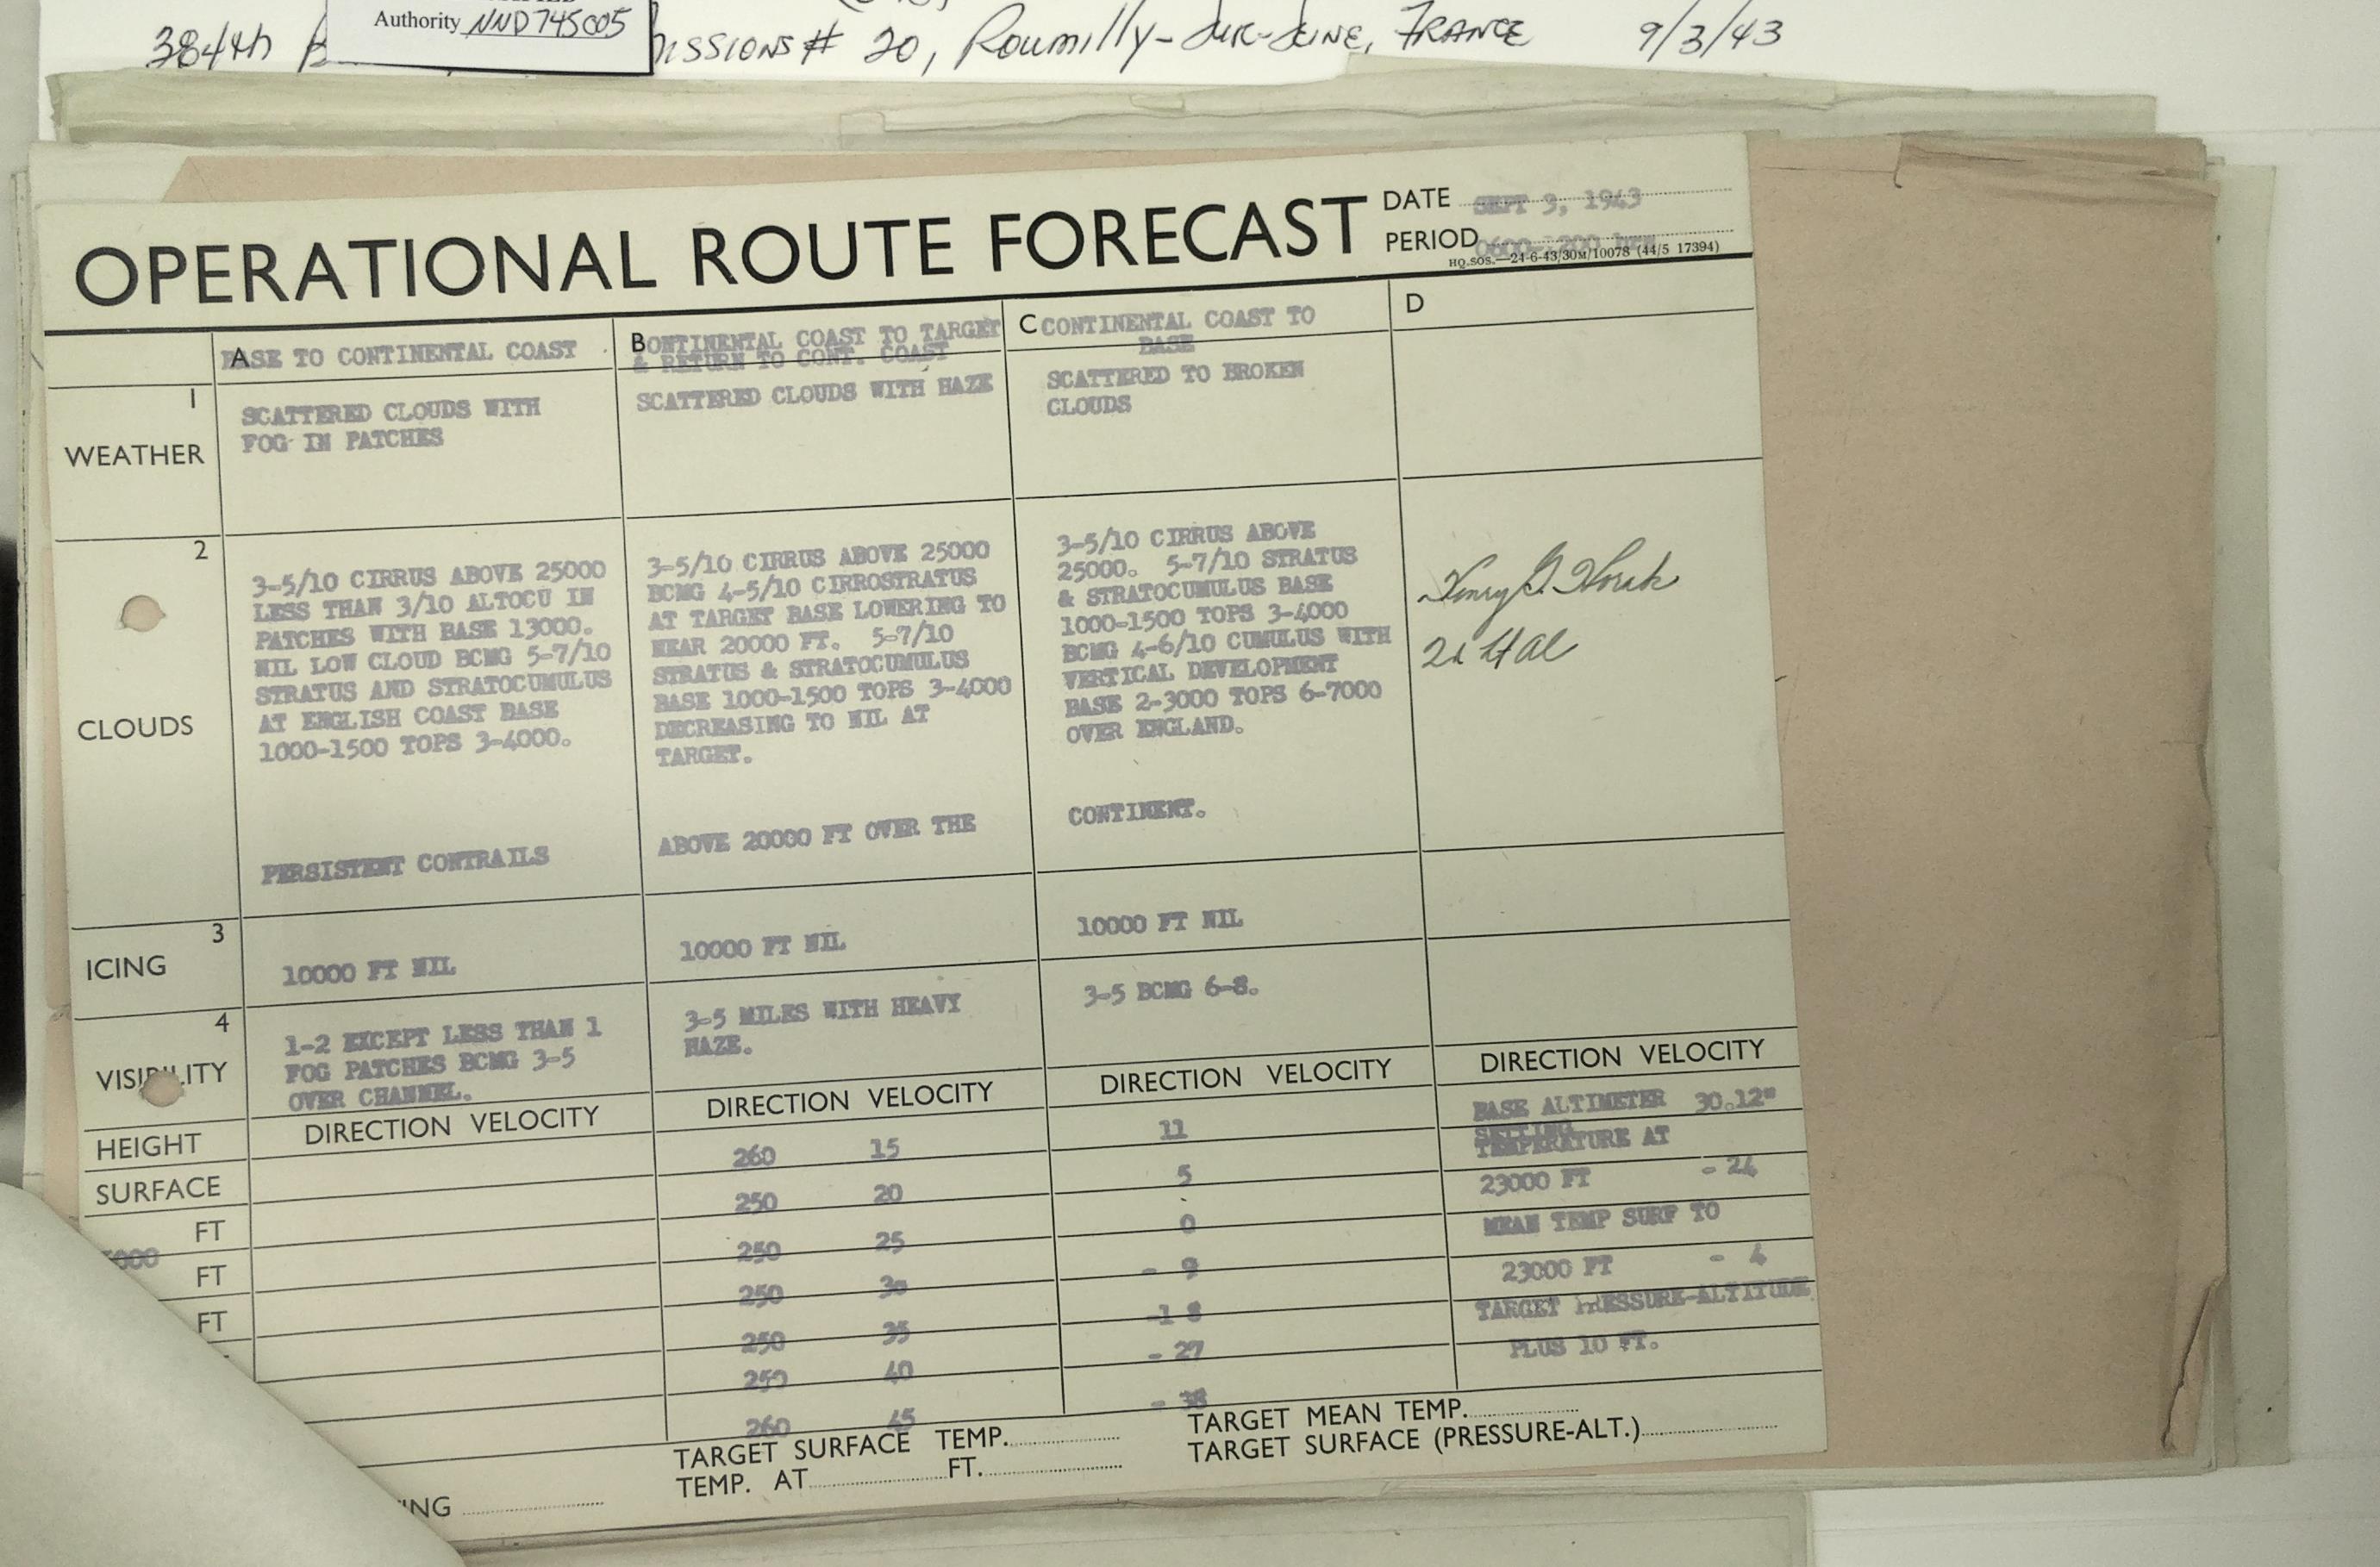 Authority NND 745005
384th B ISSIONS # 20, Roumilly-Sur-Seine, FRANCE 9/3/43
OPERATIONAL ROUTE FORECAST
DATE SEPT 3, 1943
PERIOD 0600- 200 hrs
HQ.SOS.—24-6-43/30M/10078 (44/5 17394)
A BASE TO CONTINENTAL COAST
B CONTINENTAL COAST TO TARGET
& RETURN TO CONT. COAST
C CONTINENTAL COAST TO
BASE
D
1
WEATHER
SCATTERED CLOUDS WITH
FOG IN PATCHES
SCATTERED CLOUDS WITH HAZE
SCATTERED TO BROKEN
CLOUDS
2
CLOUDS
3-5/10 CIRRUS ABOVE 25000
LESS THAN 3/10 ALTOCU IN
PATCHES WITH BASE 13000.
NIL LOW CLOUD BCMG 5-7/10
STRATUS AND STRATOCUMULUS
AT ENGLISH COAST BASE
1000-1500 TOPS 3-4000.
PERSISTENT CONTRAILS
3-5/10 CIRRUS ABOVE 25000
BCMG 4-5/10 CIRROSTRATUS
AT TARGET BASE LOWERING TO
NEAR 20000 FT. 5-7/10
STRATUS & STRATOCUMULUS
BASE 1000-1500 TOPS 3-4000
DECREASING TO NIL AT
TARGET.
ABOVE 20000 FT OVER THE
3-5/10 CIRRUS ABOVE
25000. 5-7/10 STRATUS
& STRATOCUMULUS BASE
1000-1500 TOPS 3-4000
BCMG 4-6/10 CUMULUS WITH
VERTICAL DEVELOPMENT
BASE 2-3000 TOPS 6-7000
OVER ENGLAND.
CONTINENT.
Henry G.
3
ICING
10000 FT NIL
10000 FT NIL
10000 FT NIL
4
VISIBILITY
1-2 EXCEPT LESS THAN 1
FOG PATCHES BCMG 3-5
OVER CHANNEL.
3-5 MILES WITH HEAVY
HAZE.
3-5 BCMG 6-8.
HEIGHT
DIRECTION VELOCITY
DIRECTION VELOCITY
DIRECTION VELOCITY
DIRECTION VELOCITY
SURFACE
FT
000
FT
FT
260 15
250 20
250 25
250 30
250 35
250 40
260 45
11
5
0
- 9
-1 8
- 27
- 38
BASE ALTIMETER 30.12"
SETTING
TEMPERATURE AT
23000 FT - 24
MEAN TEMP SURF TO
23000 FT - 4
TARGET PRESSURE-ALTITUDE
PLUS 10 FT.
TARGET SURFACE TEMP.
TEMP. AT FT.
TARGET MEAN TEMP.
TARGET SURFACE (PRESSURE-ALT.)
ING